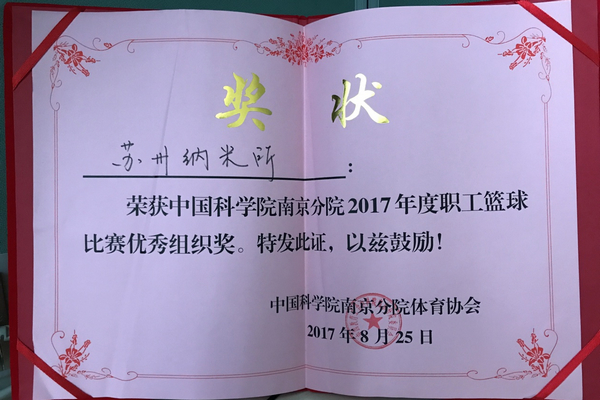 奖状
苏州纳米所：
荣获中国科学院南京分院2017年度职工篮球
比赛优秀组织奖。特发此证，以兹鼓励！
中国科学院南京分院体育协会
2017年8月25日